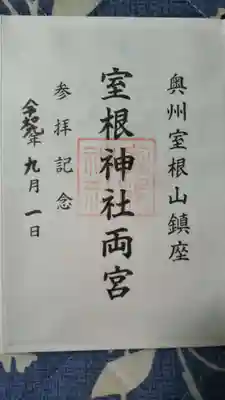 奥州室根山鎮座
室根神社両宮
参拝記念
令和元年九月一日